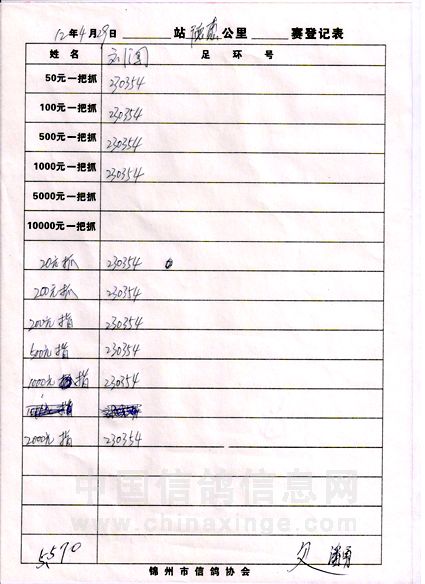 12年4月29日 站 德惠 公里 赛登记表
姓名 足环号
50元一把抓 230354
100元一把抓 230354
500元一把抓 230354
1000元一把抓 230354
5000元一把抓
10000元一把抓
20元抓 230354
200元抓 230354
200元指 230354
500元指 230354
1000元指 230354
2000元指 230354
中国信鸽信息网
www.chinaxinge.com
5570
锦州市信鸽协会